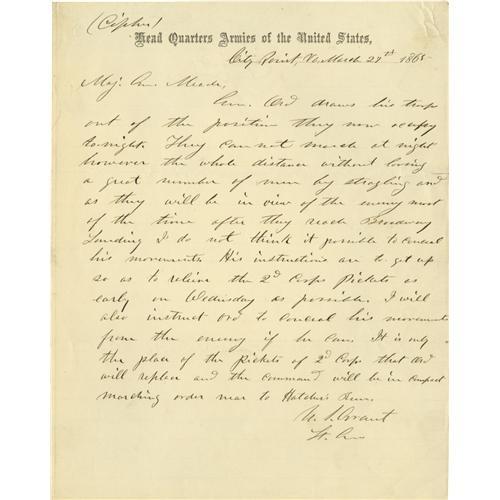 (Cipher)
Head Quarters Armies of the United States,
City Point, Va. March 27th 1865
Maj. Gen. Meade,
Gen. Ord draws his troops
out of the position they now occupy
to-night. They can not march at night
however the whole distance without losing
a great number of men by stragling and
as they will be in view of the enemy most
of the time after they reach Broadway
Landing I do not think it possible to conceal
his movements. His instructions are to get up
so as to relieve the 2d Corps Pickets as
early on Wednesday as possible. I will
also instruct Ord to conceal his movements
from the enemy if he can. It is only
the place of the Pickets of 2d Corps that Ord
will replace and the command will be in compact
marching order near to Hatcher's Run.
U. S. Grant
Lt. Gen